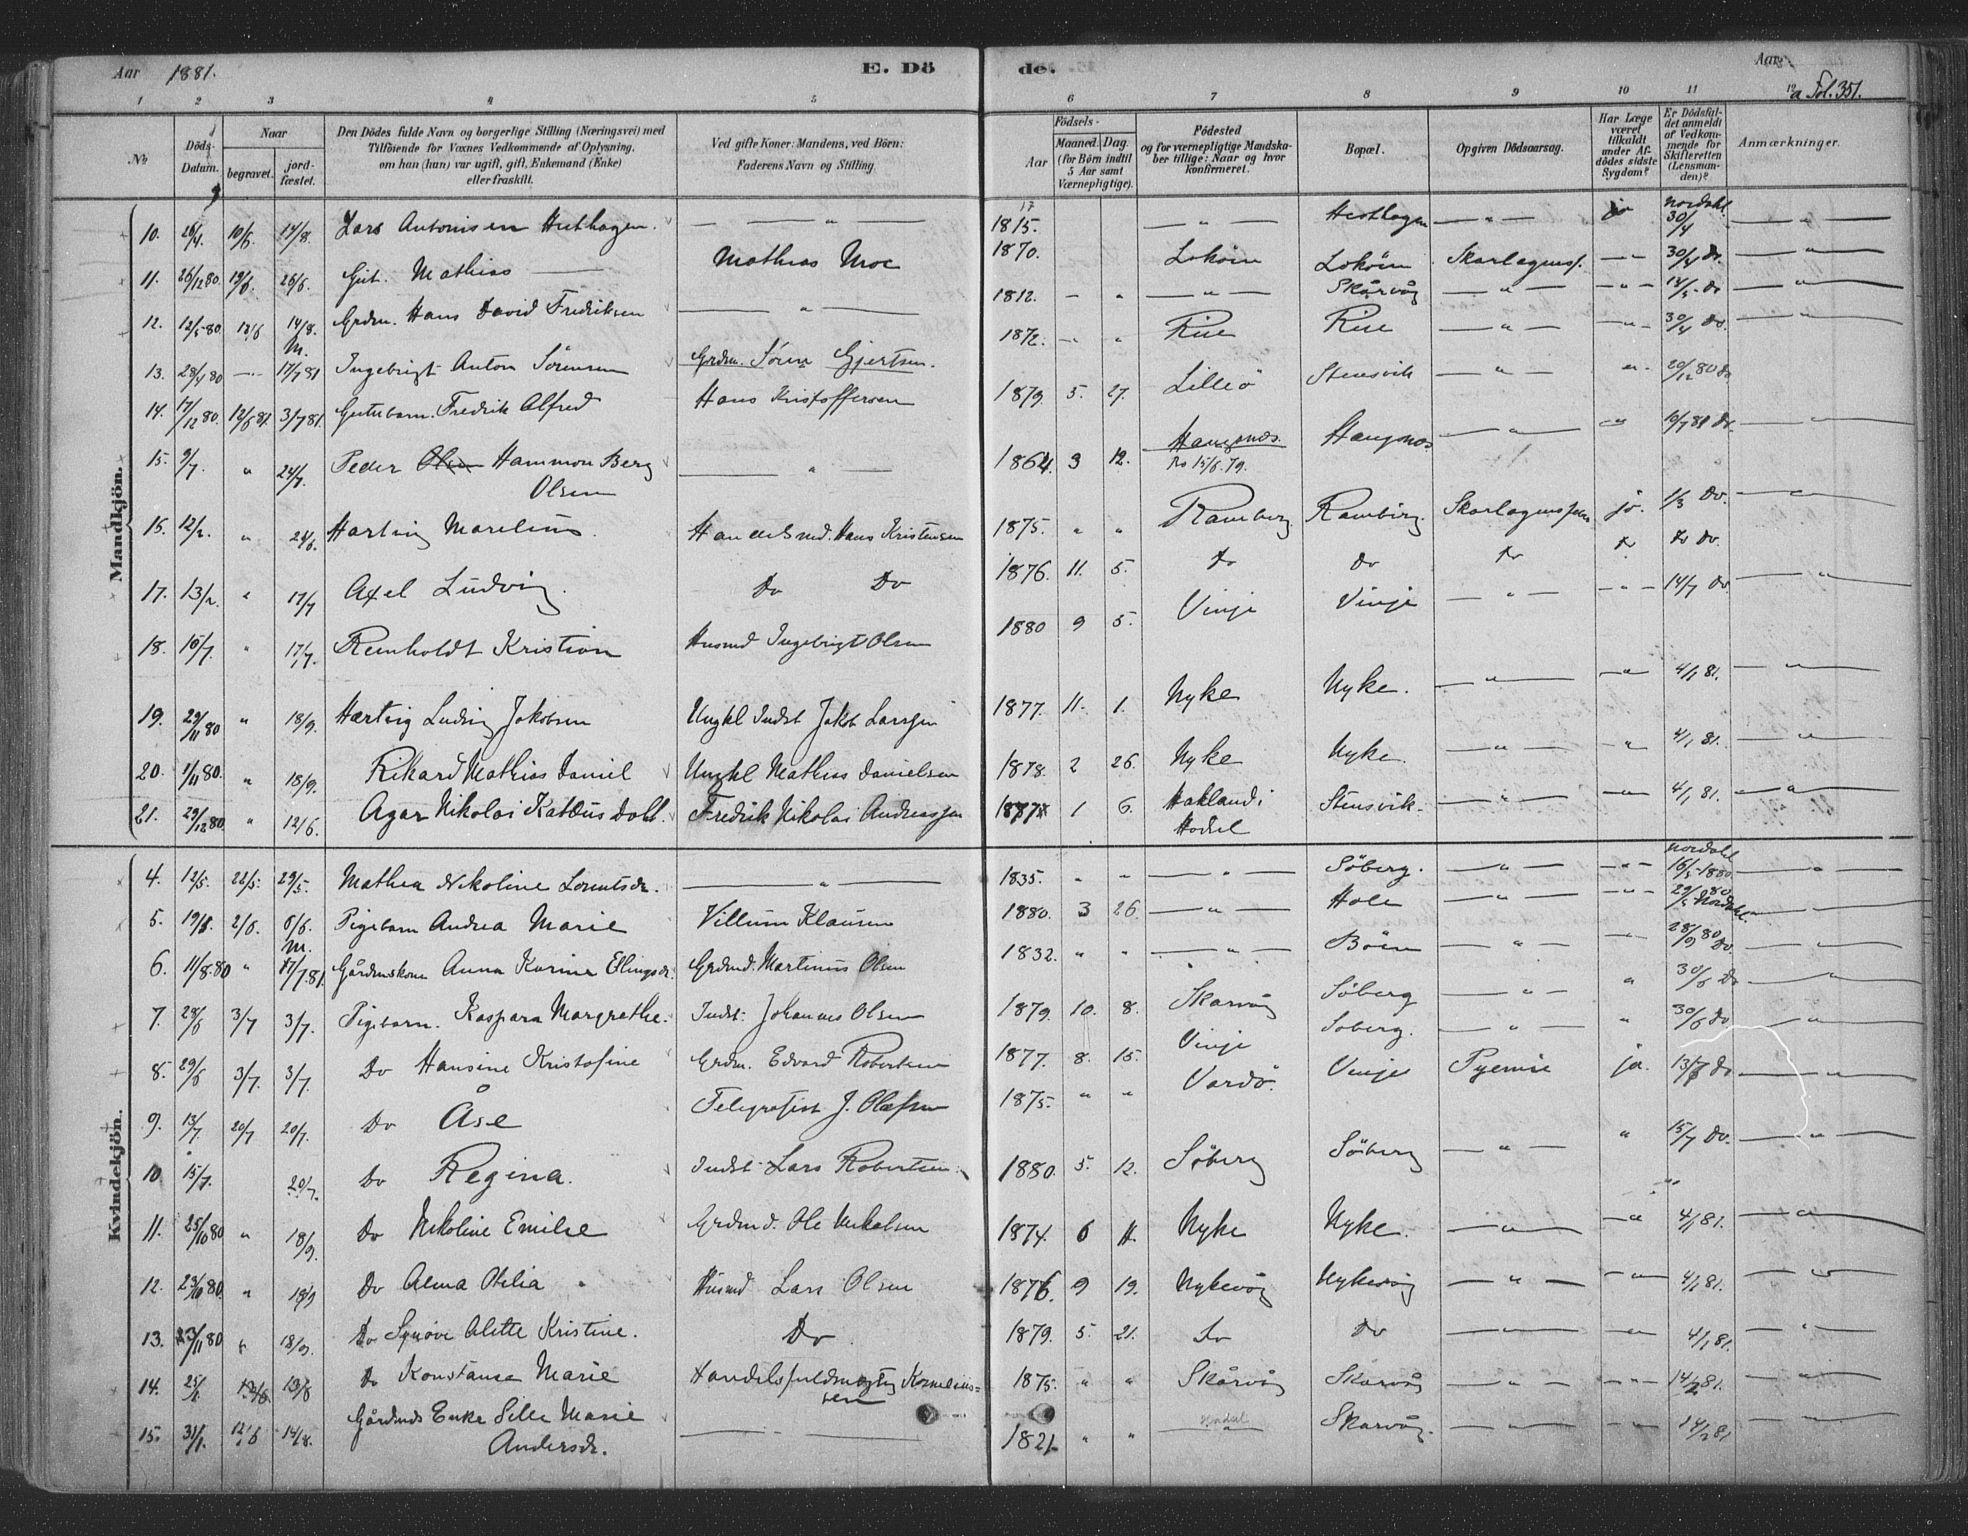 Aar 1881. E. Dö de. Aar
Fol. 351.
1 2 3 4 5 6 7 8 9 10 11 12
No Döds-Datum. Naar begravet. jordfæstet. Den Dödes fulde Navn og borgerlige Stilling (Næringsvei) med Tilföiende for Voxnes Vedkommende af Oplysning, om han (hun) var ugift, gift, Enkemand (Enke) eller fraskilt. Ved gifte Koner: Mandens, ved Börn: Faderens Navn og Stilling. Födsels- Aar Maaned. Dag. (for Börn indtil 5 Aar samt Værnepligtige). Födested og for værnepligtige Mandskaber tillige: Naar og hvor konfirmeret. Bopæl. Opgiven Dödsaarsag. Har Læge været tilkaldt under Afdödes sidste Sygdom? Er Dödsfaldet anmeldt af Vedkommende for Skifteretten (Lensmanden)? Anmærkninger.
Mandkjön.
10. 26/4. 10/6. 14/8. Lars Antonisen Hesthagen. — „ — 1815. — „ — Hesthagen — „ — Nordahl 30/4 — „ —
11. 26/12 80 19/6 26/6. Gut. Mathias — Mathias Moe 1870. Lokøin Lokøin Skarlagensf. — „ — 30/4 Do — „ —
12. 12/5 80 12/6 14/8. Grdm. Hans David Fredriksen — „ — 1812. — „ — „ — Skårvåg — „ — „ — 14/5 Do — „ —
13. 28/4 80 — M. 17/7 81 Ingebrigt Anton Sörensen Grdm. Sören Gjertsen. 1872. — „ Rise Rise — „ — „ — 30/4 Do. — „ —
14. 17/12 80. 12/6 81. 3/7 81. Guttebarn. Fredrik Alfred Hans Kristoffersen 1879. 5. 27. Lilleö Stensvik — „ — „ 20/12 80 Do
15. 9/7. „ 24/7. Peder Olsen Hammon Berg Olsen — „ — 1864. 3 12. Haugsnæs. 15/6.79. Haugsnæs. — „ — „ 10/7 81 Do. — „ —
16. 12/2. „ 24/6. Hartvig Marelius Handelsmd. Hans Kristensen 1875. „ „ Ramberg Ramberg. Skarlagensfeber ja. 1/3 Do. — „ —
17. 13/2. „ 17/7 Axel Ludvig. Do Do 1876. 11. 5. Do Do Do Do Do Do.
18. 10/7. „ 17/7. Reinholdt Kristian Husmd Ingebrigt Olsen 1880 9 5. Vinje Vinje — „ — „ — 14/7 Do — „ —
19. 29/11 80 „ 18/9. Hartvig Ludvig Jakobsen Ungkl Indst Jakob Larssen 1877. 11. 1. Nyke Nyke. — „ — „ — 4/1 81. — „ —
20. 1/11 80. „ 18/9. Rikard Mathias Daniel Ungkl Mathias Danielsen 1878. 2 26. Nyke Nyke. — „ — „ 4/1 81. — „ —
21. 29/12 80. „ 12/6. Agar Nikolai Dahl. Fredrik Nikolai Andreassen 1 6. Hakland i Hadsel Stensvik. — „ — „ — 4/1 81. — „ —
Kvindekjön.
4. 12/5. 22/5. 29/5. Mathea Nikoline Lorentsdr. — „ — 1835. „ „ — „ — Söberg. — „ — „ — Nordahl 16/5 1880. — „ —
5. 19/5. 2/6. 6/6. Pigebarn Andrea Marie Villum Klausen 1880. 3 26. — „ — Holm — „ — „ — Nordahl. — „ —
6. 11/8.80 „ M. 17/7.81. Gårdmskone Anna Karina Ellingsdr. Grdmd. Martinus Olsen 1832. „ „ — „ — Böen — „ — „ — 28/9 80 Do. — „ —
7. 28/6 3/7 3/7. Pigebarn. Kaspara Margrethe. Indst. Johannes Olsen 1879. 10. 8. Skarvåg Söberg — „ — „ 30/6 Do — „ —
8. 29/6 3/7. 3/7. Do Hansine Kristofine Grdm. Edvard Robertsen 1877. 8. 15. Vinje Söberg. — „ — „ 30/6 Do — „ —
9. 13/7. 20/7 20/7. Do Åse Telegrafist J. Olafsen 1875. „ „ Vardö. Vinje Pyemie ja. 13/7 Do — „ —
10. 15/7. 20/7. Do Regina. Indst Lars Robertsen. 1880. 5. 12. Söberg Söberg — „ — „ 15/7 Do. — „ —
11. 25/10 80 „ 18/9. Do Nikoline Emilie Grdmd. Ole Nikolsen 1874. 6 11. Nyke Nyke. — „ — „ 4/1 81. — „ —
12. 80. „ 18/9 Do Alma Otilia „ Husmd Lars Olsen 1876. 9 19. Nykevåg Nykevåg — „ — „ — 4/1 81. — „ —
13. 23/11 80 „ 18/9. Do Synöve Alette Kristine. Do 1879. 5. 21. Do Do — „ — „ — 4/1 81. — „ —
14. 25/1. 13/8 13/8 Do Konstanse Marie Handelsfuldmægtig Korneliussen 1875. „ „ Skårvåg Skarvåg — „ — „ — 14/2 81. — „ —
15. 31/1. 12/6 14/8. Gårdmds Enke Sille Marie Andersdr. — „ — 1821. „ „ Hadsel Skarvåg. — „ — „ — 14/2 81 — „ —